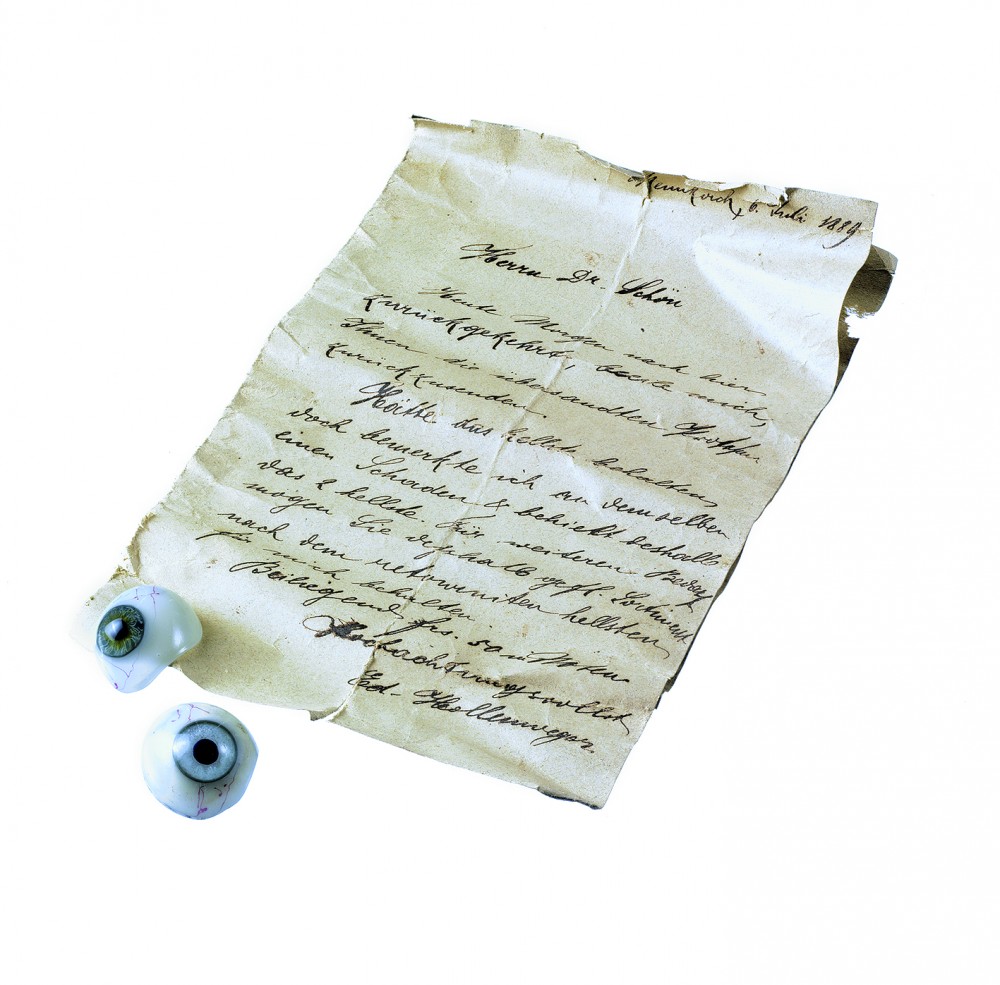 Neunkirch, 6. Juli 1889
Herrn Dr. Schön
Heute Morgen nach hier
zurückgekehrt, beeile mich,
Ihnen die übersandten
zurückzusenden.
Hätte das hellste behalten,
doch bemerkte ich an demselben
einen Schaden & behielt deshalb
das 2 hellste. Für weiteren Bedarf
mögen Sie deshalb gefl.
nach dem retournirten hellsten
für mich behalten.
Beiliegend frs. 50 in
Hochachtungsvollst
Ed. Hollenweger